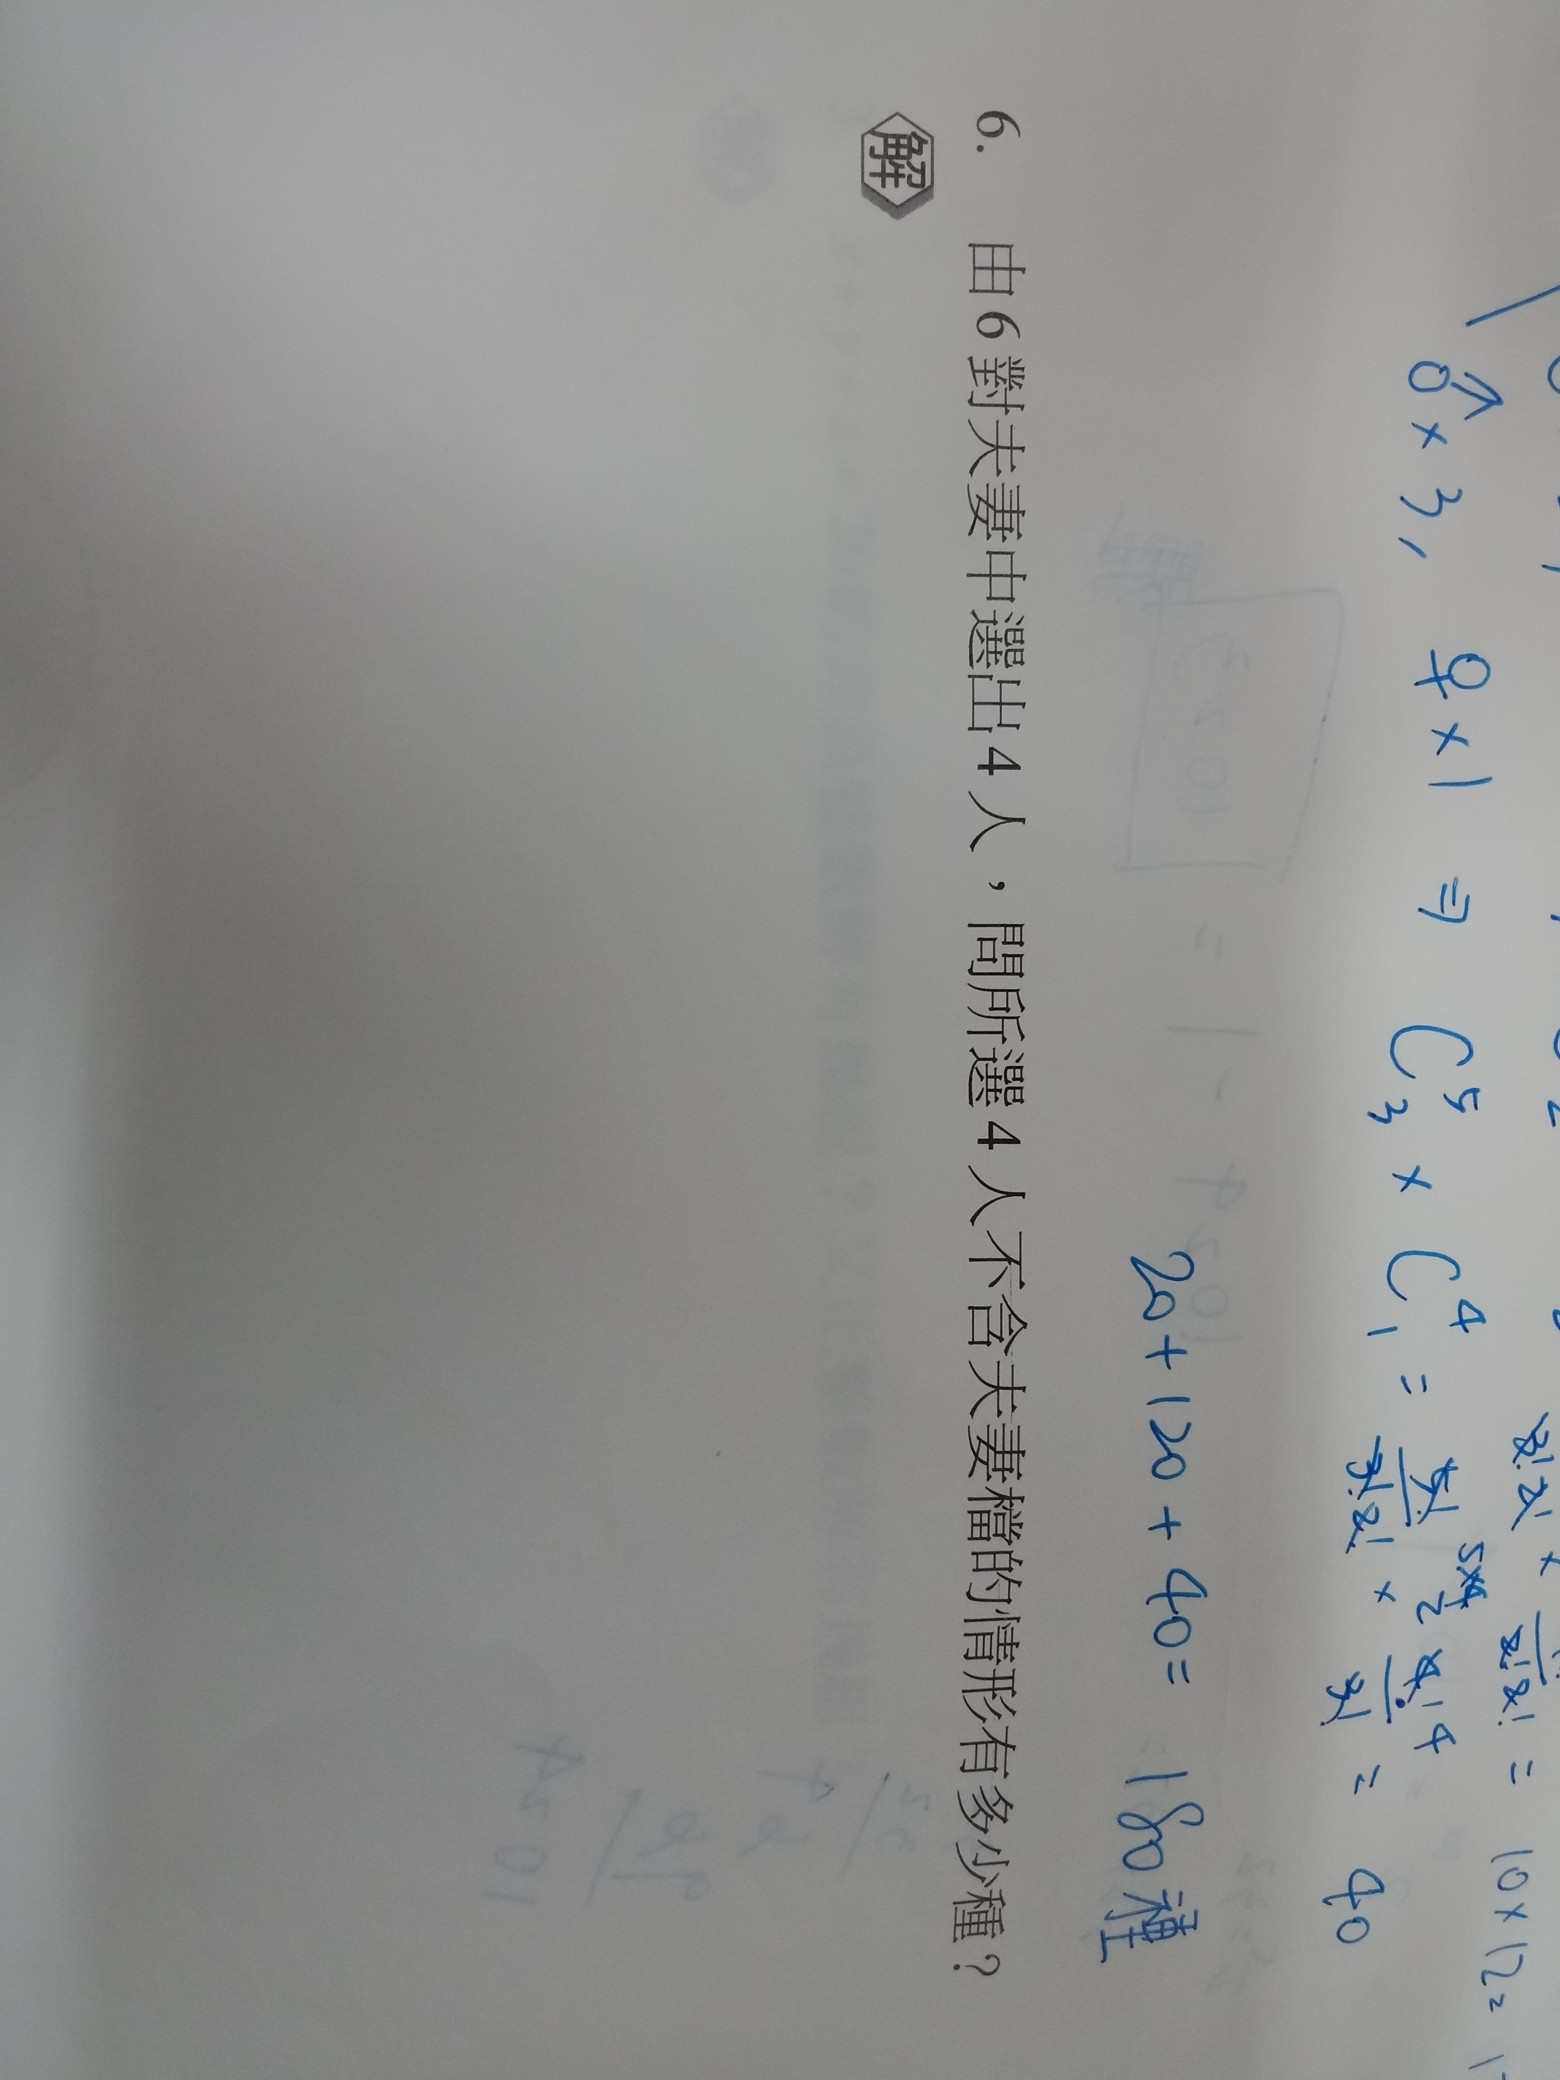 ♂×3, ♀×1 ⇒ C⁵₃ × C⁴₁ = 5!/3!2! × 4!/3! = 40
20+120+40= 180種
6. 由6對夫妻中選出4人，問所選4人不含夫妻檔的情形有多少種？
解